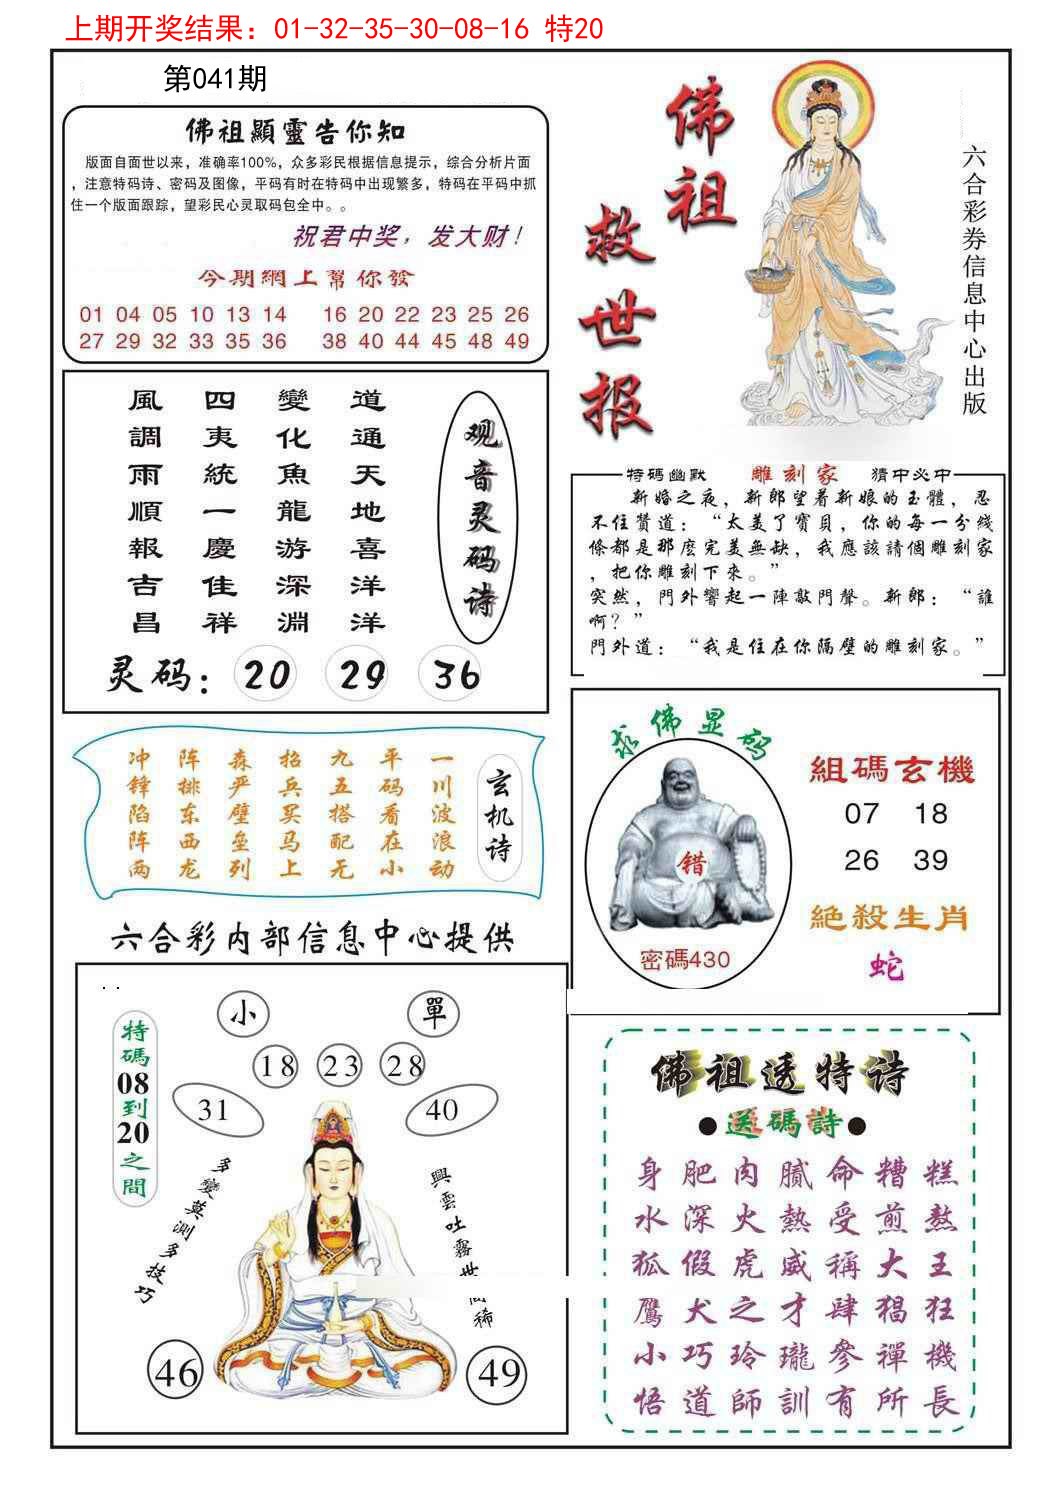 上期开奖结果：01-32-35-30-08-16 特20
第041期
佛祖顯靈告你知
版面自面世以来，准确率100%，众多彩民根据信息提示，综合分析片面
，注意特码诗、密码及图像，平码有时在特码中出现繁多，特码在平码中抓
住一个版面跟踪，望彩民心灵取码包全中。。
祝君中奖，发大财！
今期網上幫你發
01 04 05 10 13 14 16 20 22 23 25 26
27 29 32 33 35 36 38 40 44 45 48 49
佛祖
救世报
六合彩券信息中心出版
道通天地喜洋洋
變化魚龍游深淵
四夷統一慶佳祥
風調雨順報吉昌
观音灵码诗
灵码：20 29 36
特码幽默 雕刻家 猜中必中
新婚之夜，新郎望着新娘的玉體，忍
不住贊道：“太美了寶貝，你的每一分綫
條都是那麽完美無缺，我應該請個雕刻家
，把你雕刻下來。”
突然，門外響起一陣敲門聲。新郎：“誰
啊？”
門外道：“我是住在你隔壁的雕刻家。”
玄机诗
一川波浪动
平码看在小
九五搭配无
招兵买马上
森严壁垒列
阵排东西龙
冲锋陷阵两
求佛显码
错
密碼430
組碼玄機
07 18
26 39
絶殺生肖
蛇
六合彩内部信息中心提供
小 單
18 23 28
31 40
特碼08到20之間
多變莫測多技巧
興雲吐霧世稀
46 49
佛祖透特诗
●送碼詩●
身肥肉膩命糟糕
水深火熱受煎熬
狐假虎威稱大王
鷹犬之才肆猖狂
小巧玲瓏參禪機
悟道師訓有所長